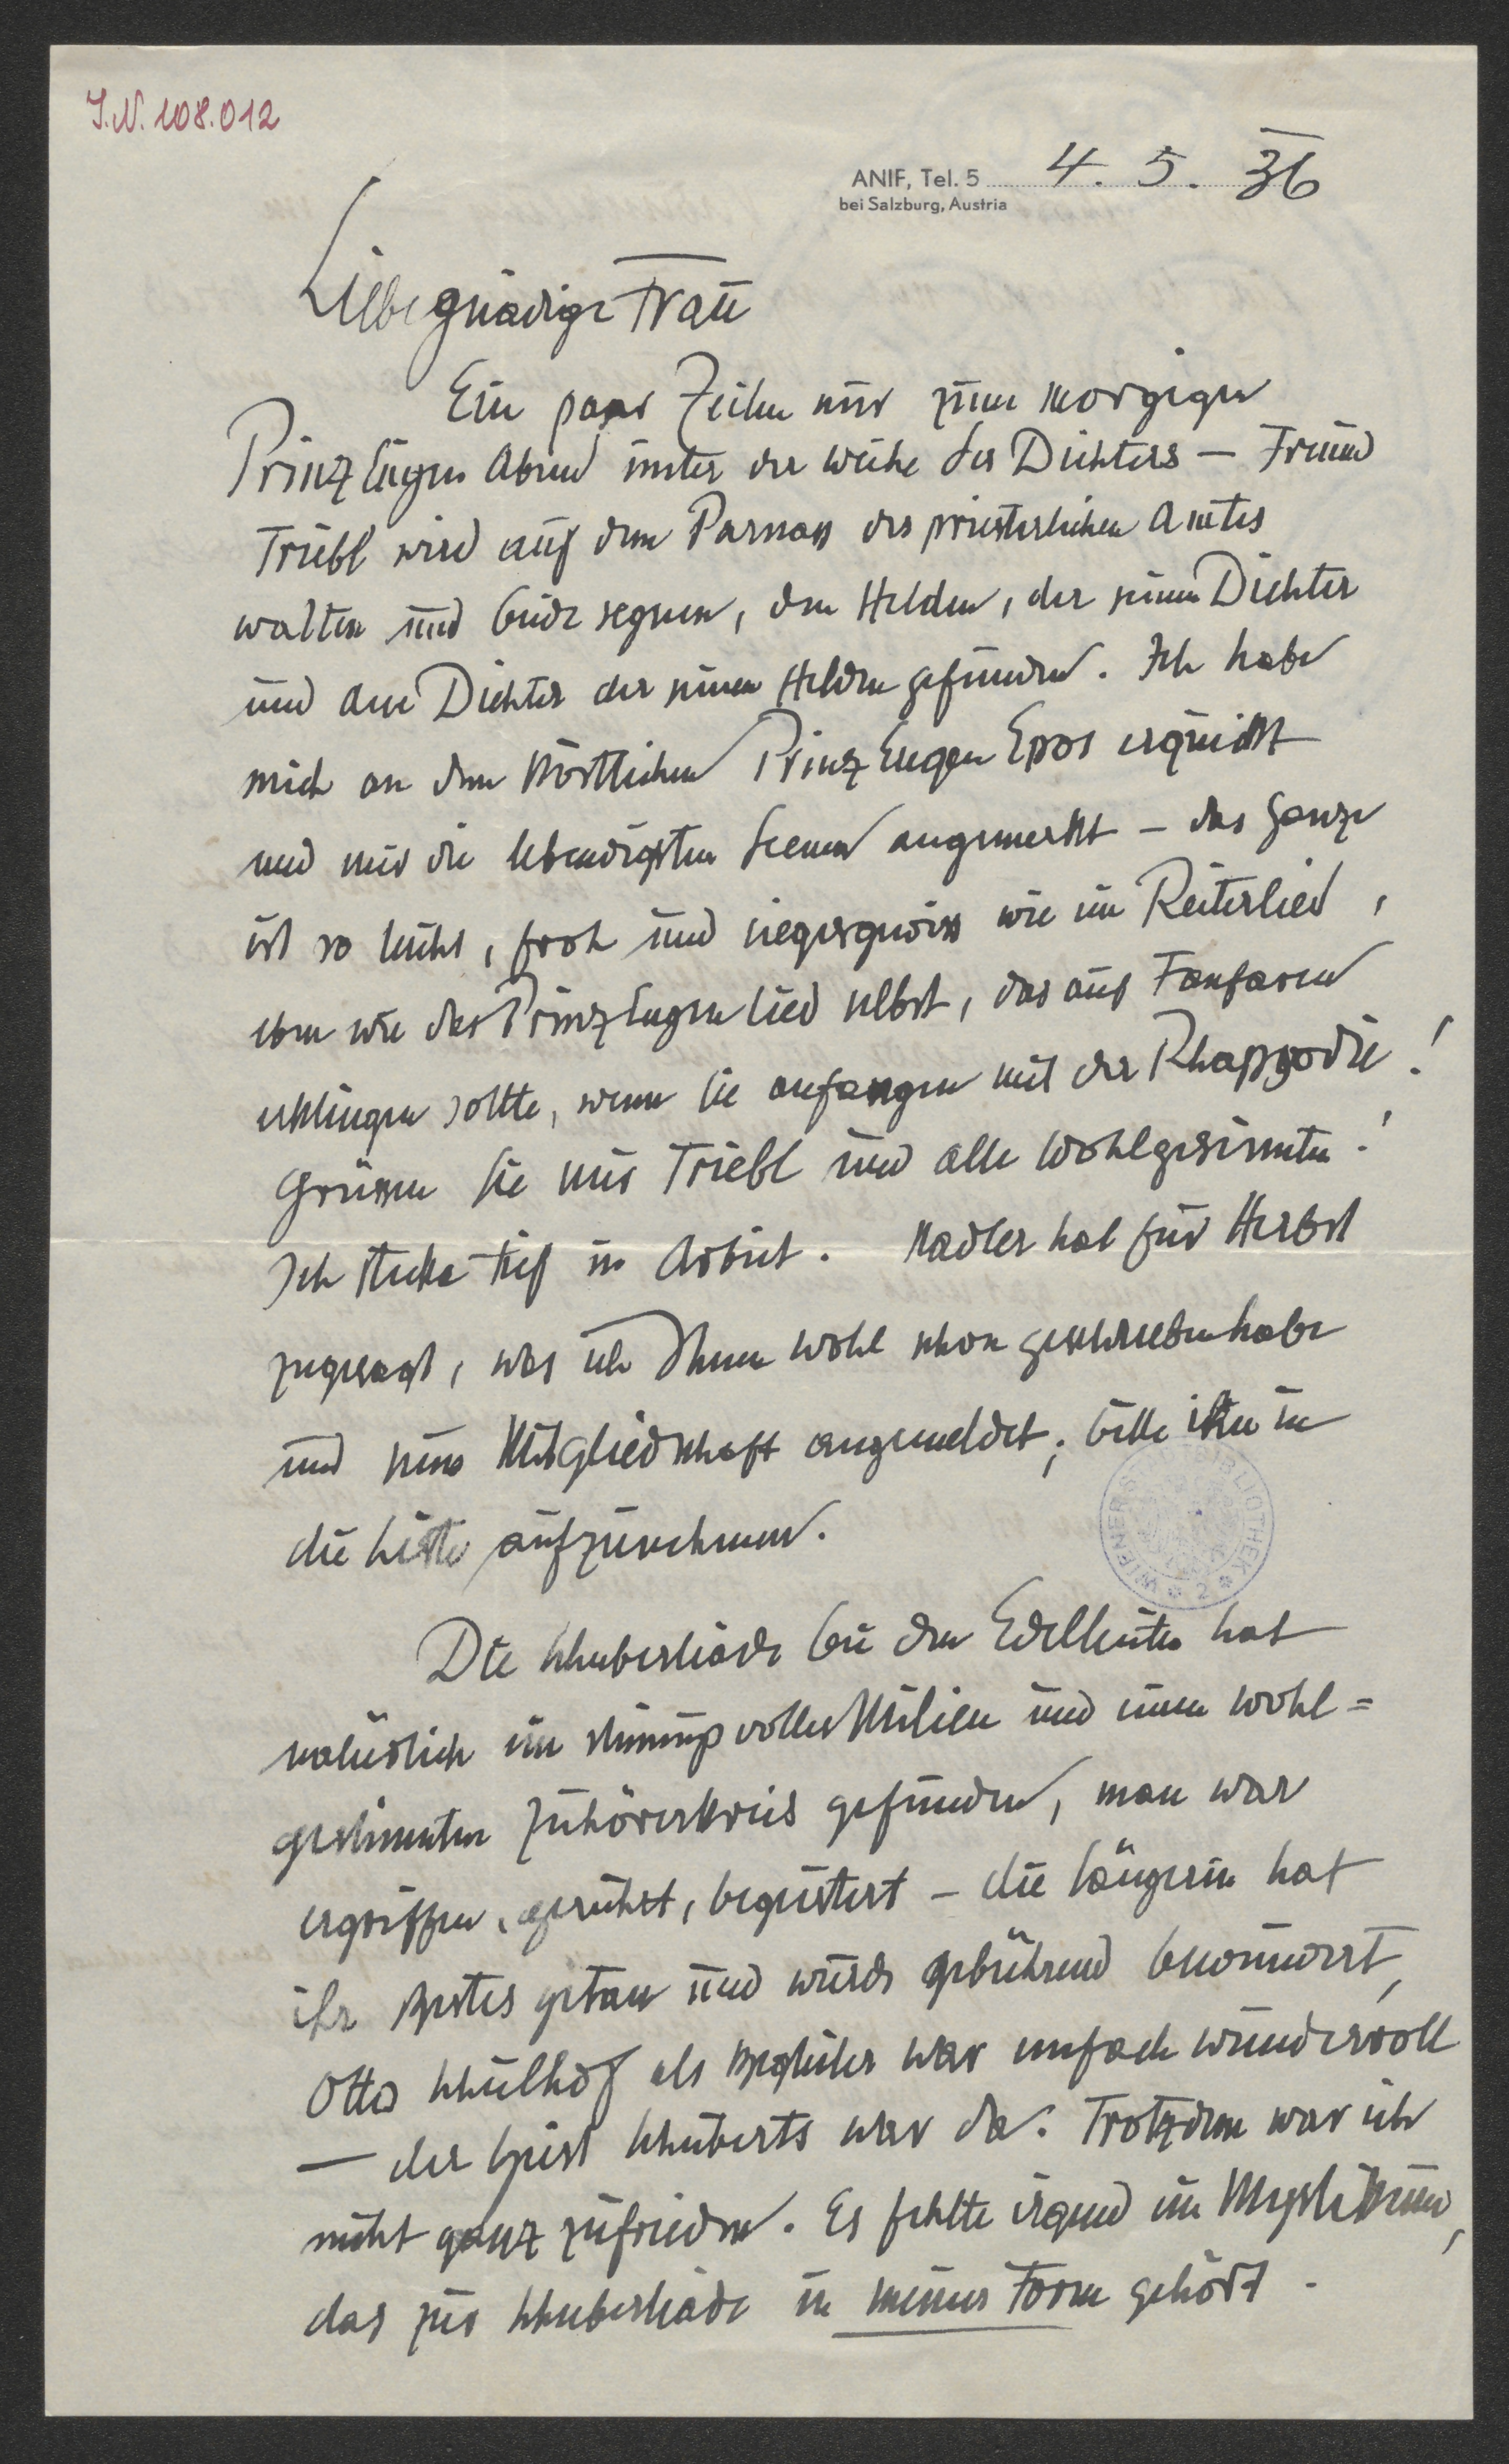 J.N. 108.012
ANIF, Tel. 5 4. 5. 36
bei Salzburg, Austria
Liebe gnädige Frau
Ein paar Zeilen nur zum morgigen
Prinz Eugen Abend unter der Weihe des Dichters — Freund
Triebl wird auf dem Parnass des priesterlichen Amtes
walten und beide segnen, den Helden, der seinen Dichter
und den Dichter der seinen Helden gefunden. Ich habe
mich an dem köstlichen Prinz Eugen Epos erquickt
und mir die lebendigsten Scenen angemerkt – das Ganze
ist so leicht, froh und siegesgewiss wie ein Reiterlied,
eben wie das Prinz Eugen Lied selbst, das aus Fanfaren
erklingen sollte, wenn Sie anfangen mit der Rhapsodie!
Grüssen Sie mir Triebl und alle Wohlgesinnten!
Ich stecke tief in Arbeit. Nadler hat für Herbst
zugesagt, was ich Ihnen wohl schon geschrieben habe
und seine Mitgliedschaft angemeldet; bitte ihn in
die Liste aufzunehmen.
WIENER STADTBIBLIOTHEK * 2 *
Die Schubertiade bei den Edelleuten hat
natürlich ein stimmungsvolles Milieu und einen wohl=
gestimmten Zuhörerkreis gefunden, man war
ergriffen, gerührt, begeistert – die Sängerin hat
ihr Bestes getan und wurde gebührend bewundert,
Otto Schulhof als Begleiter war einfach wundervoll
— der Geist Schuberts war da. Trotzdem war ich
nicht ganz zufrieden. Es fehlte irgend ein Mysterium,
das zur Schubertiade in meiner Form gehört.